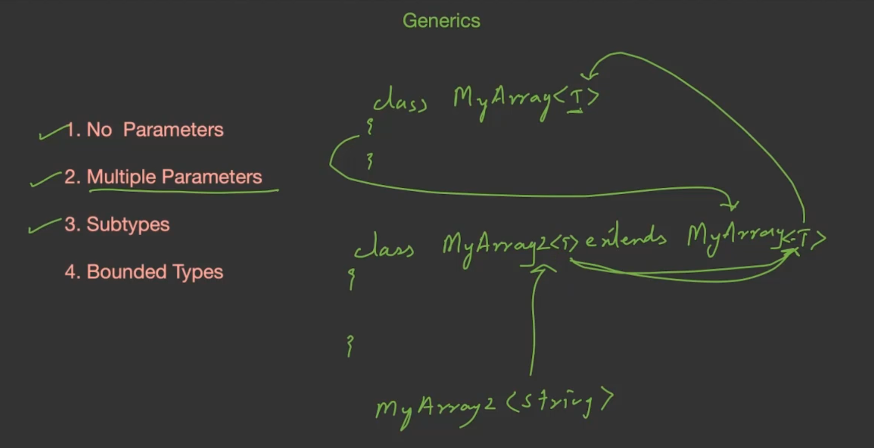 Generics
1. No Parameters
2. Multiple Parameters
3. Subtypes
4. Bounded Types
class MyArray<T>
{
}
class MyArray2<T> extends MyArray<T>
{
}
MyArray2<string>